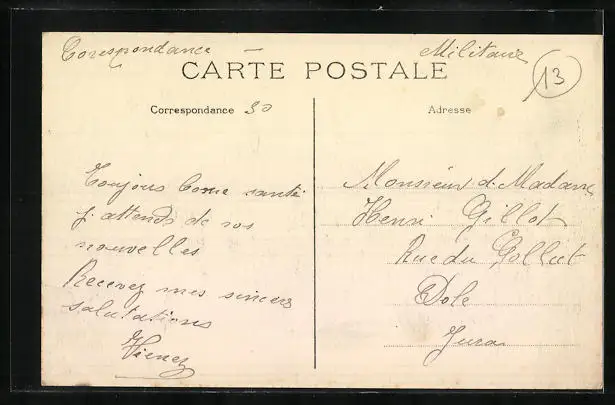 Corespondance - Militaire
13
CARTE POSTALE
Correspondance 30
Adresse
Toujours bonne santé
j'attends de vos
nouvelles
Recevez mes sincères
salutations
Vienez
Monsieur & Madame
Henri Gillot
Rue du Gollut
Dole
Jura